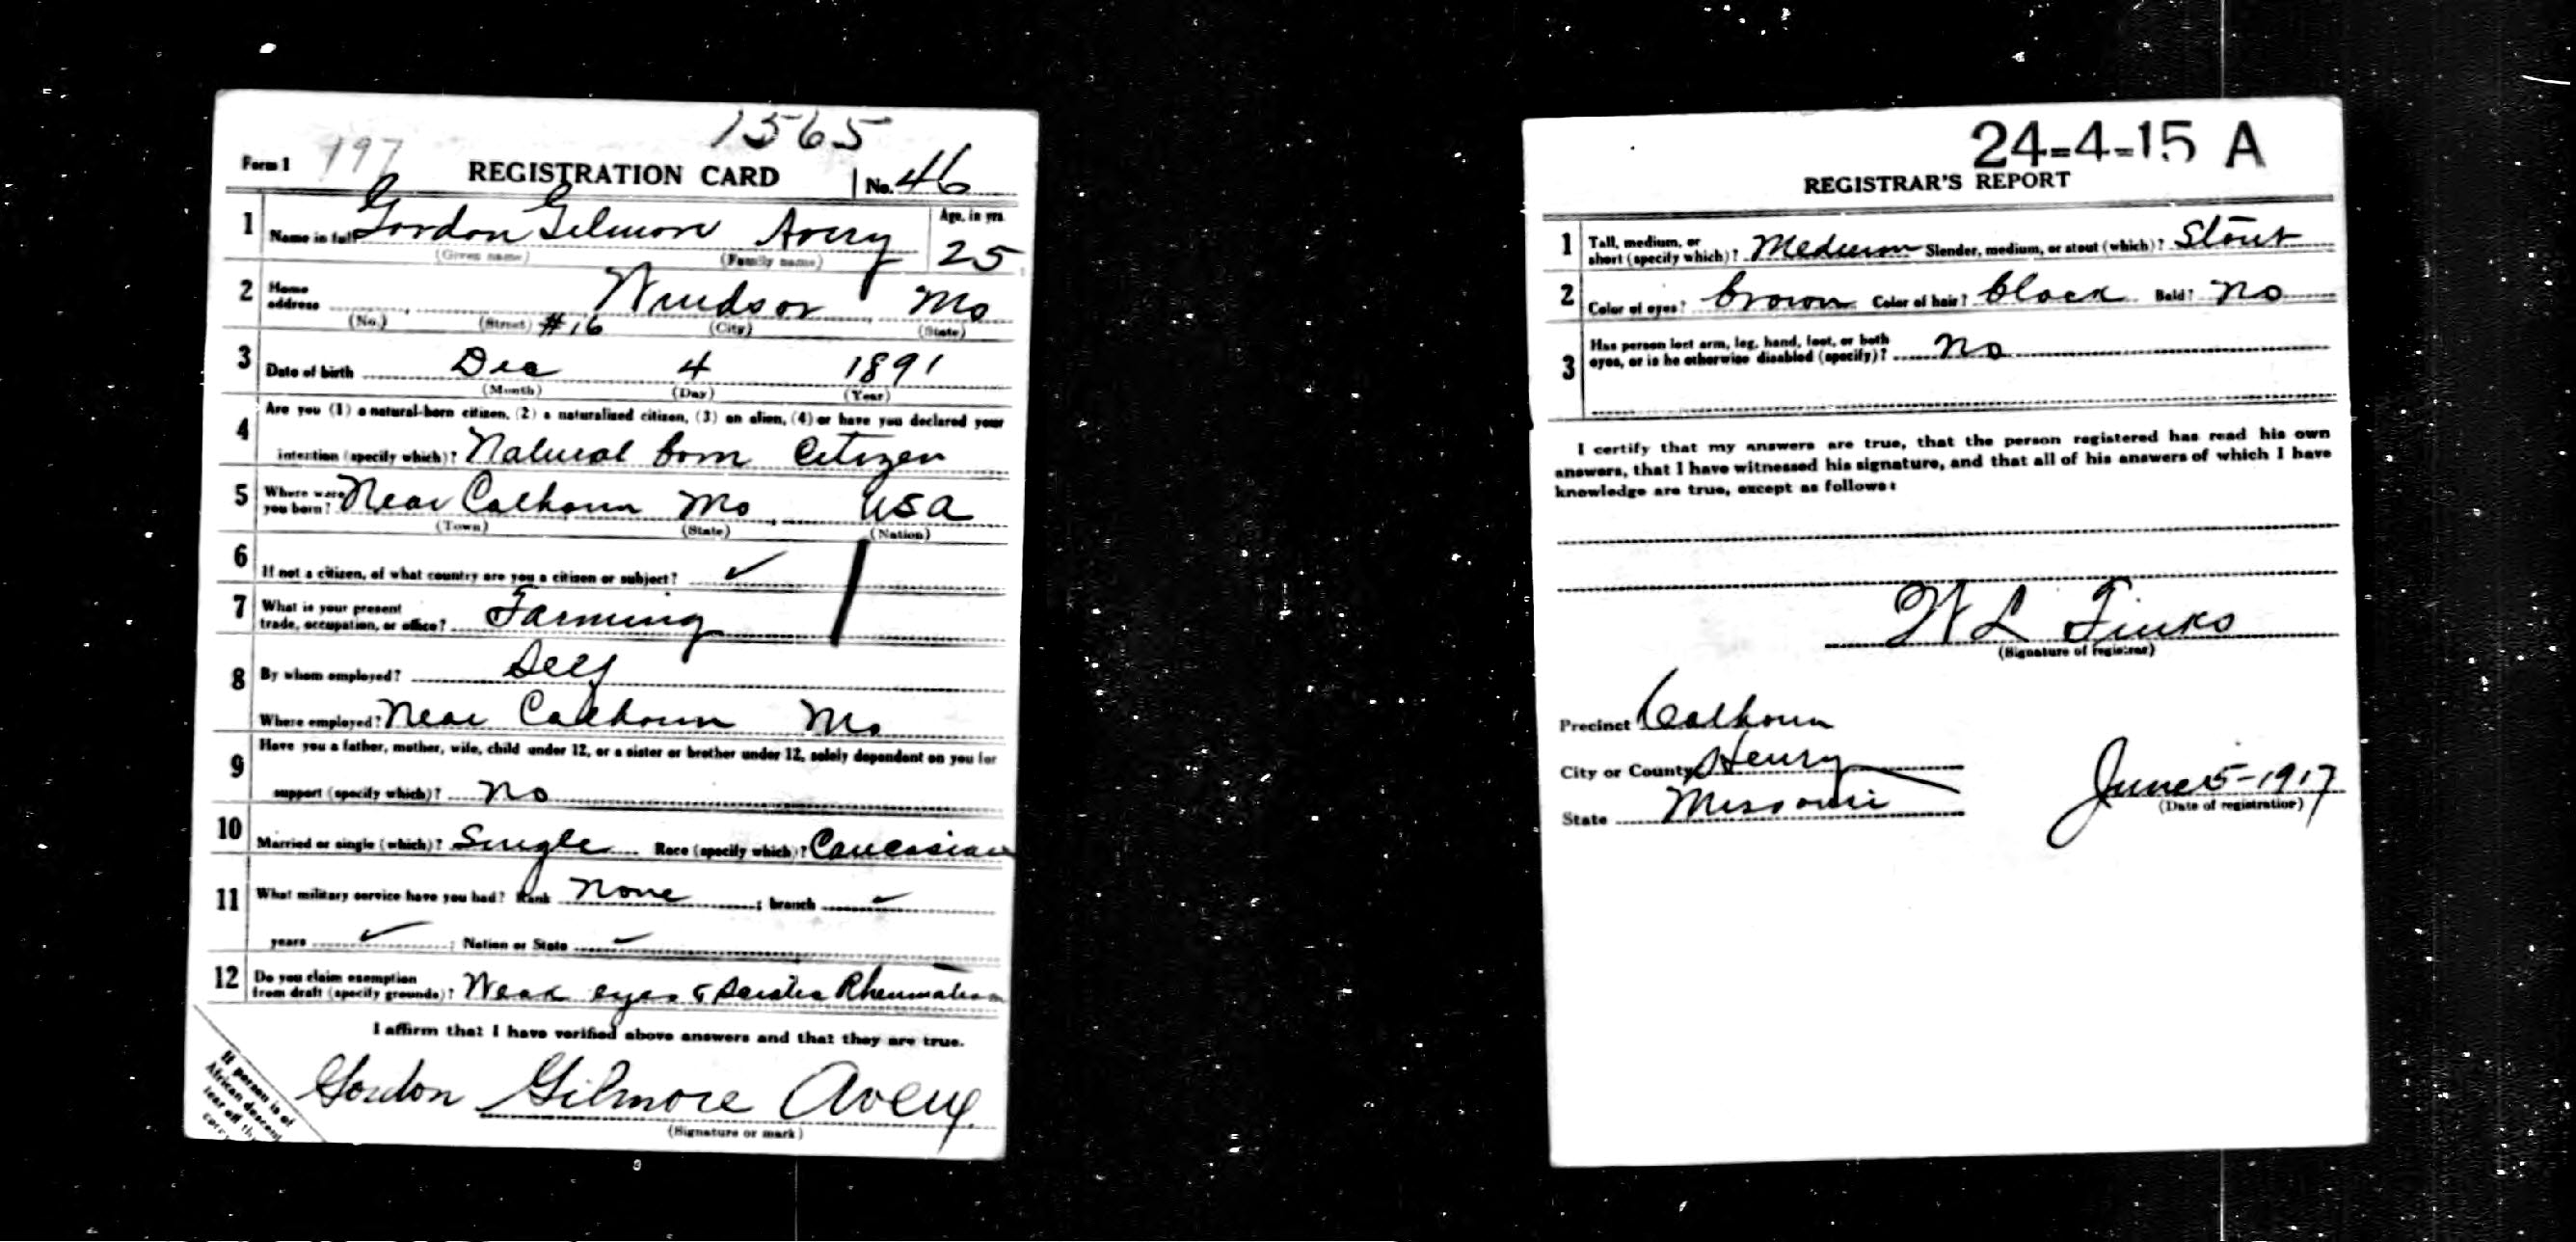 1565
Form 1 197 REGISTRATION CARD No. 46
1 Name in full Gordon Gilmore Avery Age, in yrs. 25
(Given name) (Family name)
2 Home address Windsor Mo
(No.) (Street) #16 (City) (State)
3 Date of birth Dec 4 1891
(Month) (Day) (Year)
4 Are you (1) a natural-born citizen, (2) a naturalized citizen, (3) an alien, (4) or have you declared your
intention (specify which)? Natural born Citizen
5 Where were you born? Near Calhoun Mo USA
(Town) (State) (Nation)
6 If not a citizen, of what country are you a citizen or subject? ✓
7 What is your present trade, occupation, or office? Farming
8 By whom employed? Self
Where employed? Near Calhoun Mo
9 Have you a father, mother, wife, child under 12, or a sister or brother under 12, solely dependent on you for
support (specify which)? No
10 Married or single (which)? Single Race (specify which)? Caucasian
11 What military service have you had? Rank None ; branch ✓
years ✓ ; Nation or State ✓
12 Do you claim exemption from draft (specify grounds)? Weak eyes & Rheumatism
I affirm that I have verified above answers and that they are true.
Gordon Gilmore Avery
(Signature or mark)
If person is of
African descent
tear off
24-4-15 A
REGISTRAR'S REPORT
1 Tall, medium, or short (specify which)? Medium Slender, medium, or stout (which)? Stout
2 Color of eyes? brown Color of hair? black Bald? No
3 Has person lost arm, leg, hand, foot, or both
eyes, or is he otherwise disabled (specify)? No
I certify that my answers are true, that the person registered has read his own
answers, that I have witnessed his signature, and that all of his answers of which I have
knowledge are true, except as follows:
W L Finks
(Signature of registrar)
Precinct Calhoun
City or County Henry
State Missouri
June 5-1917
(Date of registration)